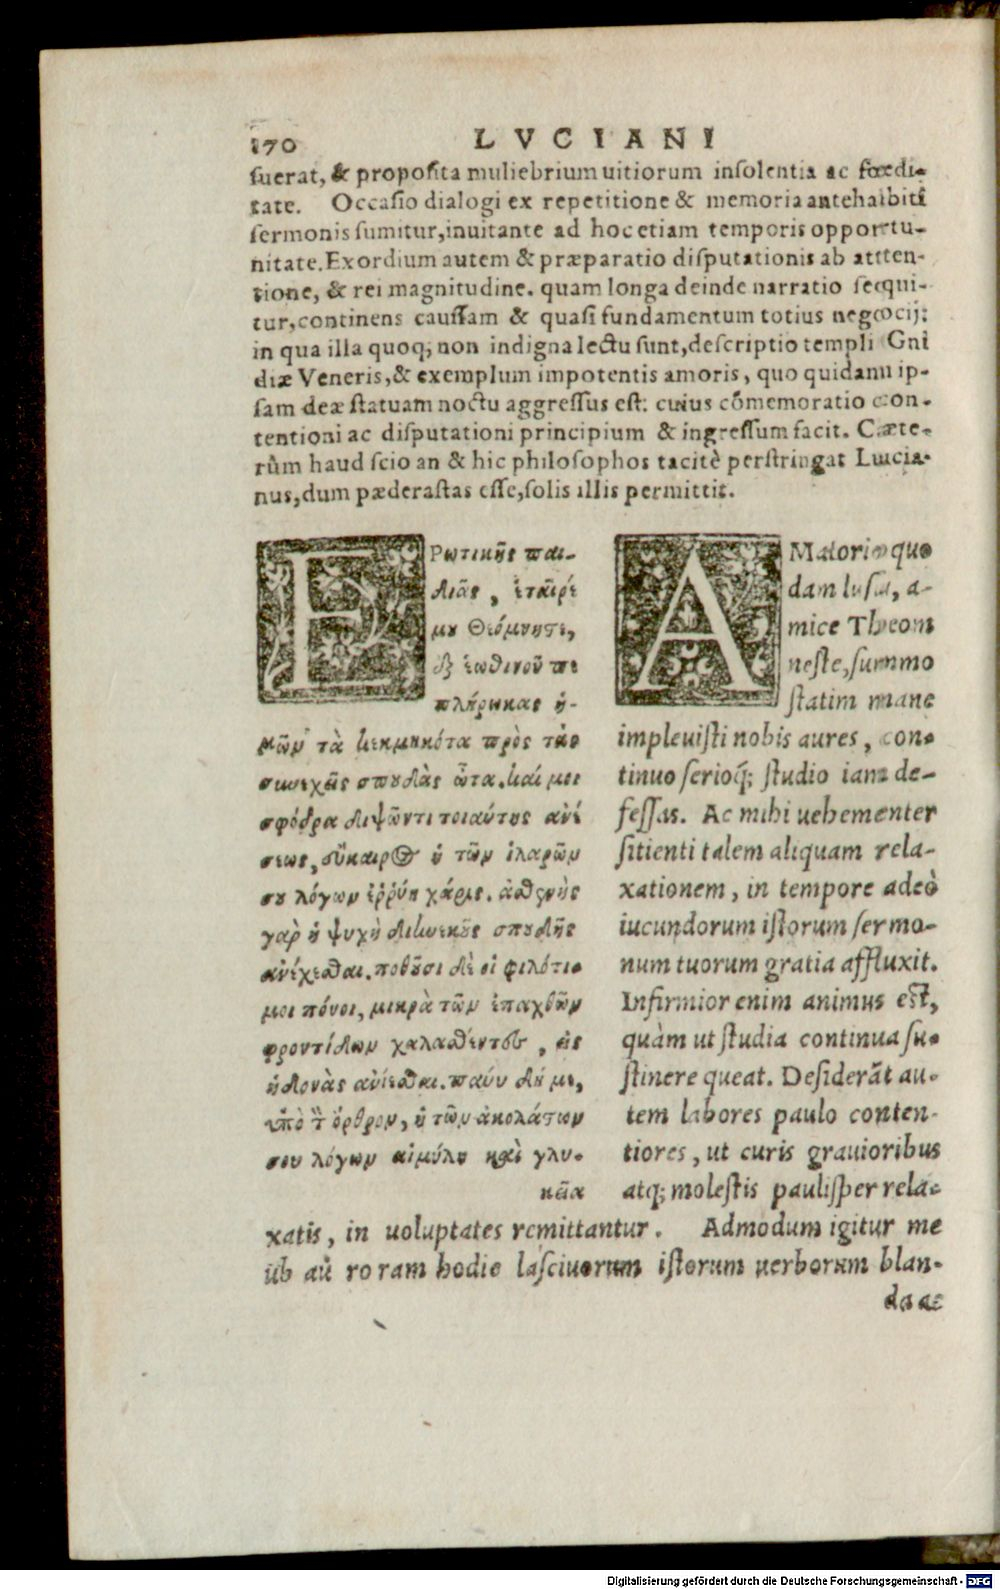 170 LVCIANI
suerat, & proposita muliebrium uitiorum insolentia ac fœdi-
tate. Occasio dialogi ex repetitione & memoria antehabiti
sermonis sumitur, inuitante ad hoc etiam temporis opportu-
nitate. Exordium autem & præparatio disputationis ab atten-
tione, & rei magnitudine. quam longa deinde narratio sequi-
tur, continens caussam & quasi fundamentum totius negocij:
in qua illa quoq; non indigna lectu sunt, descriptio templi Gni
diæ Veneris, & exemplum impotentis amoris, quo quidam ip-
sam deæ statuam noctu aggressus est: cuius cōmemoratio con-
tentioni ac disputationi principium & ingressum facit. Cæte-
rùm haud scio an & hic philosophos tacitè perstringat Lucia-
nus, dum pæderastas esse, solis illis permittit.
ΕΡωτικῆς παι-
διᾶς, ἑταῖρέ
μου Θεόμνηστε,
ἐξ ἑωθινοῦ πε
πλήρωκας ἡ-
μῶν τὰ κεκμηκότα πρὸς τὰς
συνεχεῖς σπουδὰς ὦτα. καί μοι
σφόδρα διψῶντι τοιαύτης ἀνέ
σεως, εὔκαιρος ἡ τῶν ἱλαρῶν
σου λόγων ἐρρύη χάρις. ἀσθενὴς
γὰρ ἡ ψυχὴ διηνεκοῦς σπουδῆς
ἀνέχεσθαι. ποθοῦσι δὲ οἱ φιλότι-
μοι πόνοι, μικρὰ τῶν ἐπαχθῶν
φροντίδων χαλασθέντες, εἰς
ἡδονὰς ἀνίεσθαι. πάνυ δή με,
ὑπὸ τὸν ὄρθρον, ἡ τῶν ἀκολάστων
σου λόγων αἱμύλη καὶ γλυ-
κεῖα
AMatorio quo
dam lusu, a-
mice Theom
neste, summo
statim mane
impleuisti nobis aures, con-
tinuo serioq; studio iam de-
fessas. Ac mihi uehementer
sitienti talem aliquam rela-
xationem, in tempore adeò
iucundorum istorum sermo-
num tuorum gratia affluxit.
Infirmior enim animus est,
quàm ut studia continua su-
stinere queat. Desiderāt au-
tem labores paulo conten-
tiores, ut curis grauioribus
atq; molestis paulisper rela-
xatis, in uoluptates remittantur. Admodum igitur me
ub au roram hodie lasciuorum istorum uerborum blan-
da ac
Digitalisierung gefördert durch die Deutsche Forschungsgemeinschaft - DFG